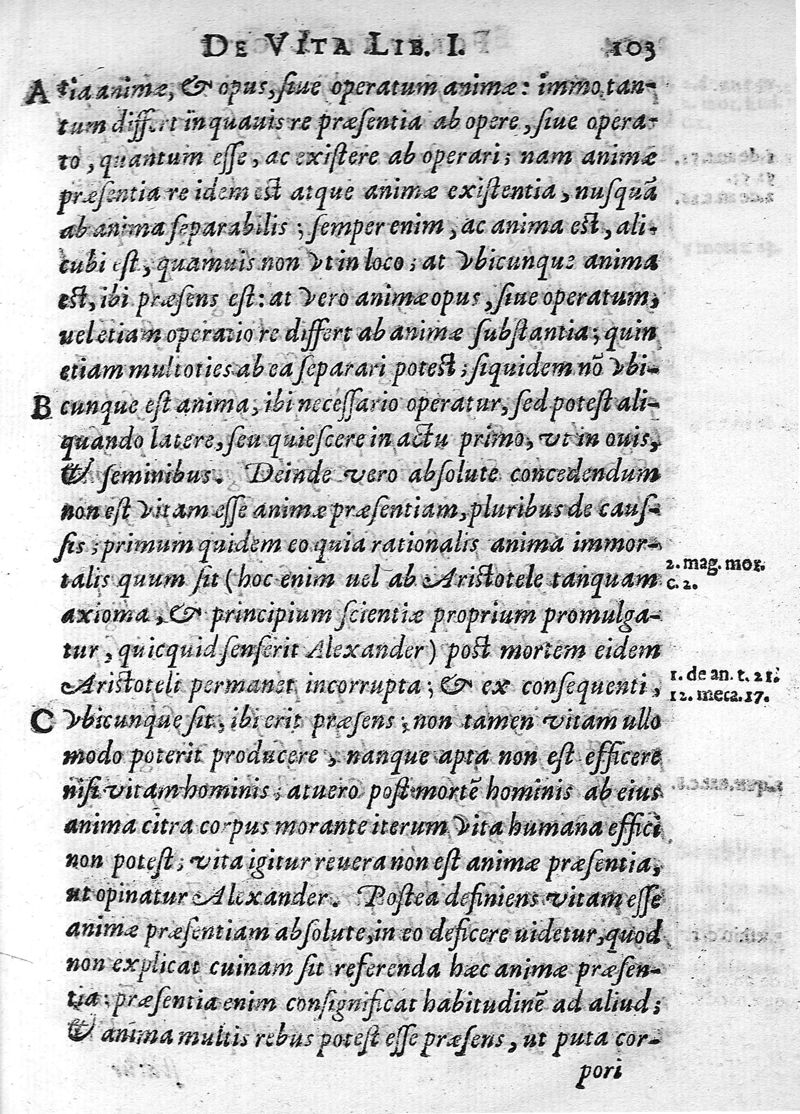 DE VITA LIB. I. 103
A tia animæ, & opus, ſiue operatum animæ: immo tan-
tum differt in quauis re præſentia ab opere, ſiue opera-
to, quantum eſſe, ac exiſtere ab operari; nam animæ
præſentia re idem est atque animæ exiſtentia, nuſquā
ab anima ſeparabilis; ſemper enim, ac anima est, ali-
cubi eſt, quamuis non vt in loco; at vbicunque anima
est, ibi præſens eſt: at vero animæ opus, ſiue operatum,
uel etiam operatio re differt ab animæ ſubſtantia; quin
etiam multoties ab ea ſeparari potest; ſiquidem nō vbi-
B cunque eſt anima, ibi neceſſario operatur, ſed poteſt ali-
quando latere, ſeu quieſcere in actu primo, vt in ouis,
& ſeminibus. Deinde vero abſolute concedendum
non eſt vitam eſſe animæ præſentiam, pluribus de cauſ-
ſis; primum quidem eo quia rationalis anima immor-
talis quum ſit (hoc enim uel ab Ariſtotele tanquam
2. mag. mor.
c. 2.
axioma, & principium ſcientiæ proprium promulga-
tur, quicquid ſenſerit Alexander) poſt mortem eidem
Ariſtoteli permanet incorrupta; & ex conſequenti,
1. de an. t. 21.
12. meca. 17.
C vbicunque ſit, ibi erit præſens; non tamen vitam ullo
modo poterit producere, nanque apta non eſt efficere
niſi vitam hominis; at uero poſt mortē hominis ab eius
anima citra corpus morante iterum vita humana effici
non poteſt; vita igitur reuera non eſt animæ præſentia,
ut opinatur Alexander. Poſtea definiens vitam eſſe
animæ præſentiam abſolute, in eo deficere uidetur, quod
non explicat cuinam ſit referenda hæc animæ præſen-
tia: præſentia enim conſignificat habitudinē ad aliud;
& anima multis rebus poteſt eſſe præſens, ut puta cor-
pori